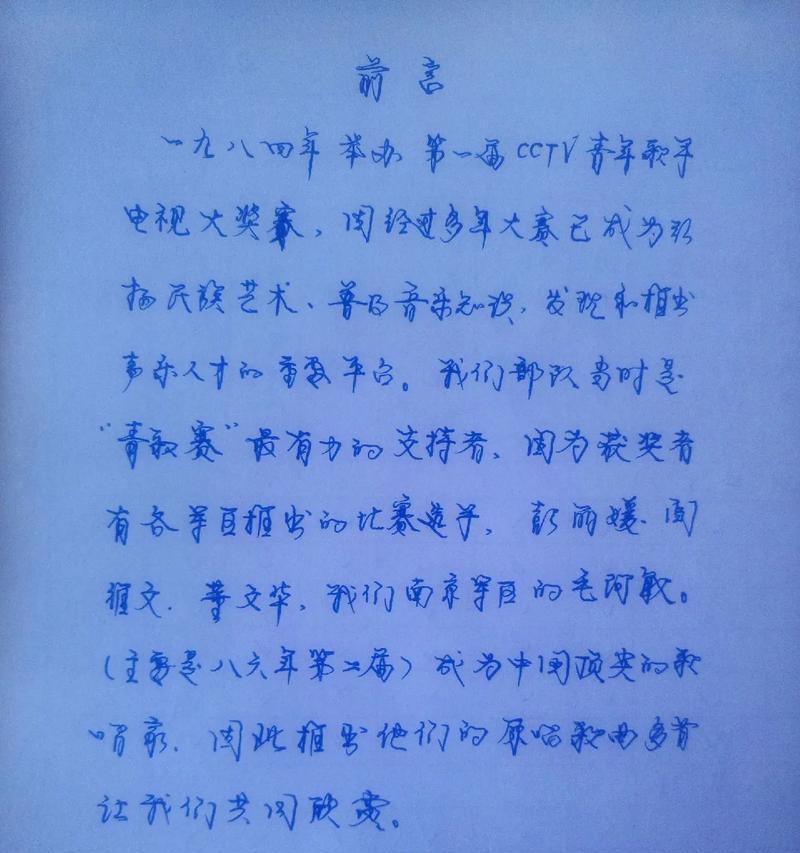 前言
一九八四年举办第一届CCTV青年歌手
电视大奖赛,因经过多年大赛已成为弘
扬民族艺术、普及音乐知识,发现和推出
声乐人才的重要平台。我们部队当时是
“青歌赛”最有力的支持者,因为获奖者
有各军区推出的比赛选手,彭丽媛、阎
维文、董文华,我们南京军区的毛阿敏。
(主要是八六年第二届)成为中国顶尖的歌
唱家,因此推出他们的原唱歌曲多首
让我们共同欣赏。